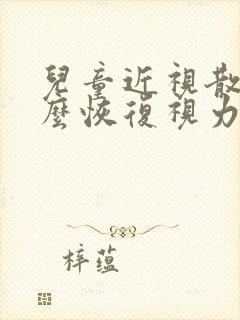 兒童近視散
麼恢復視力
梓蘊